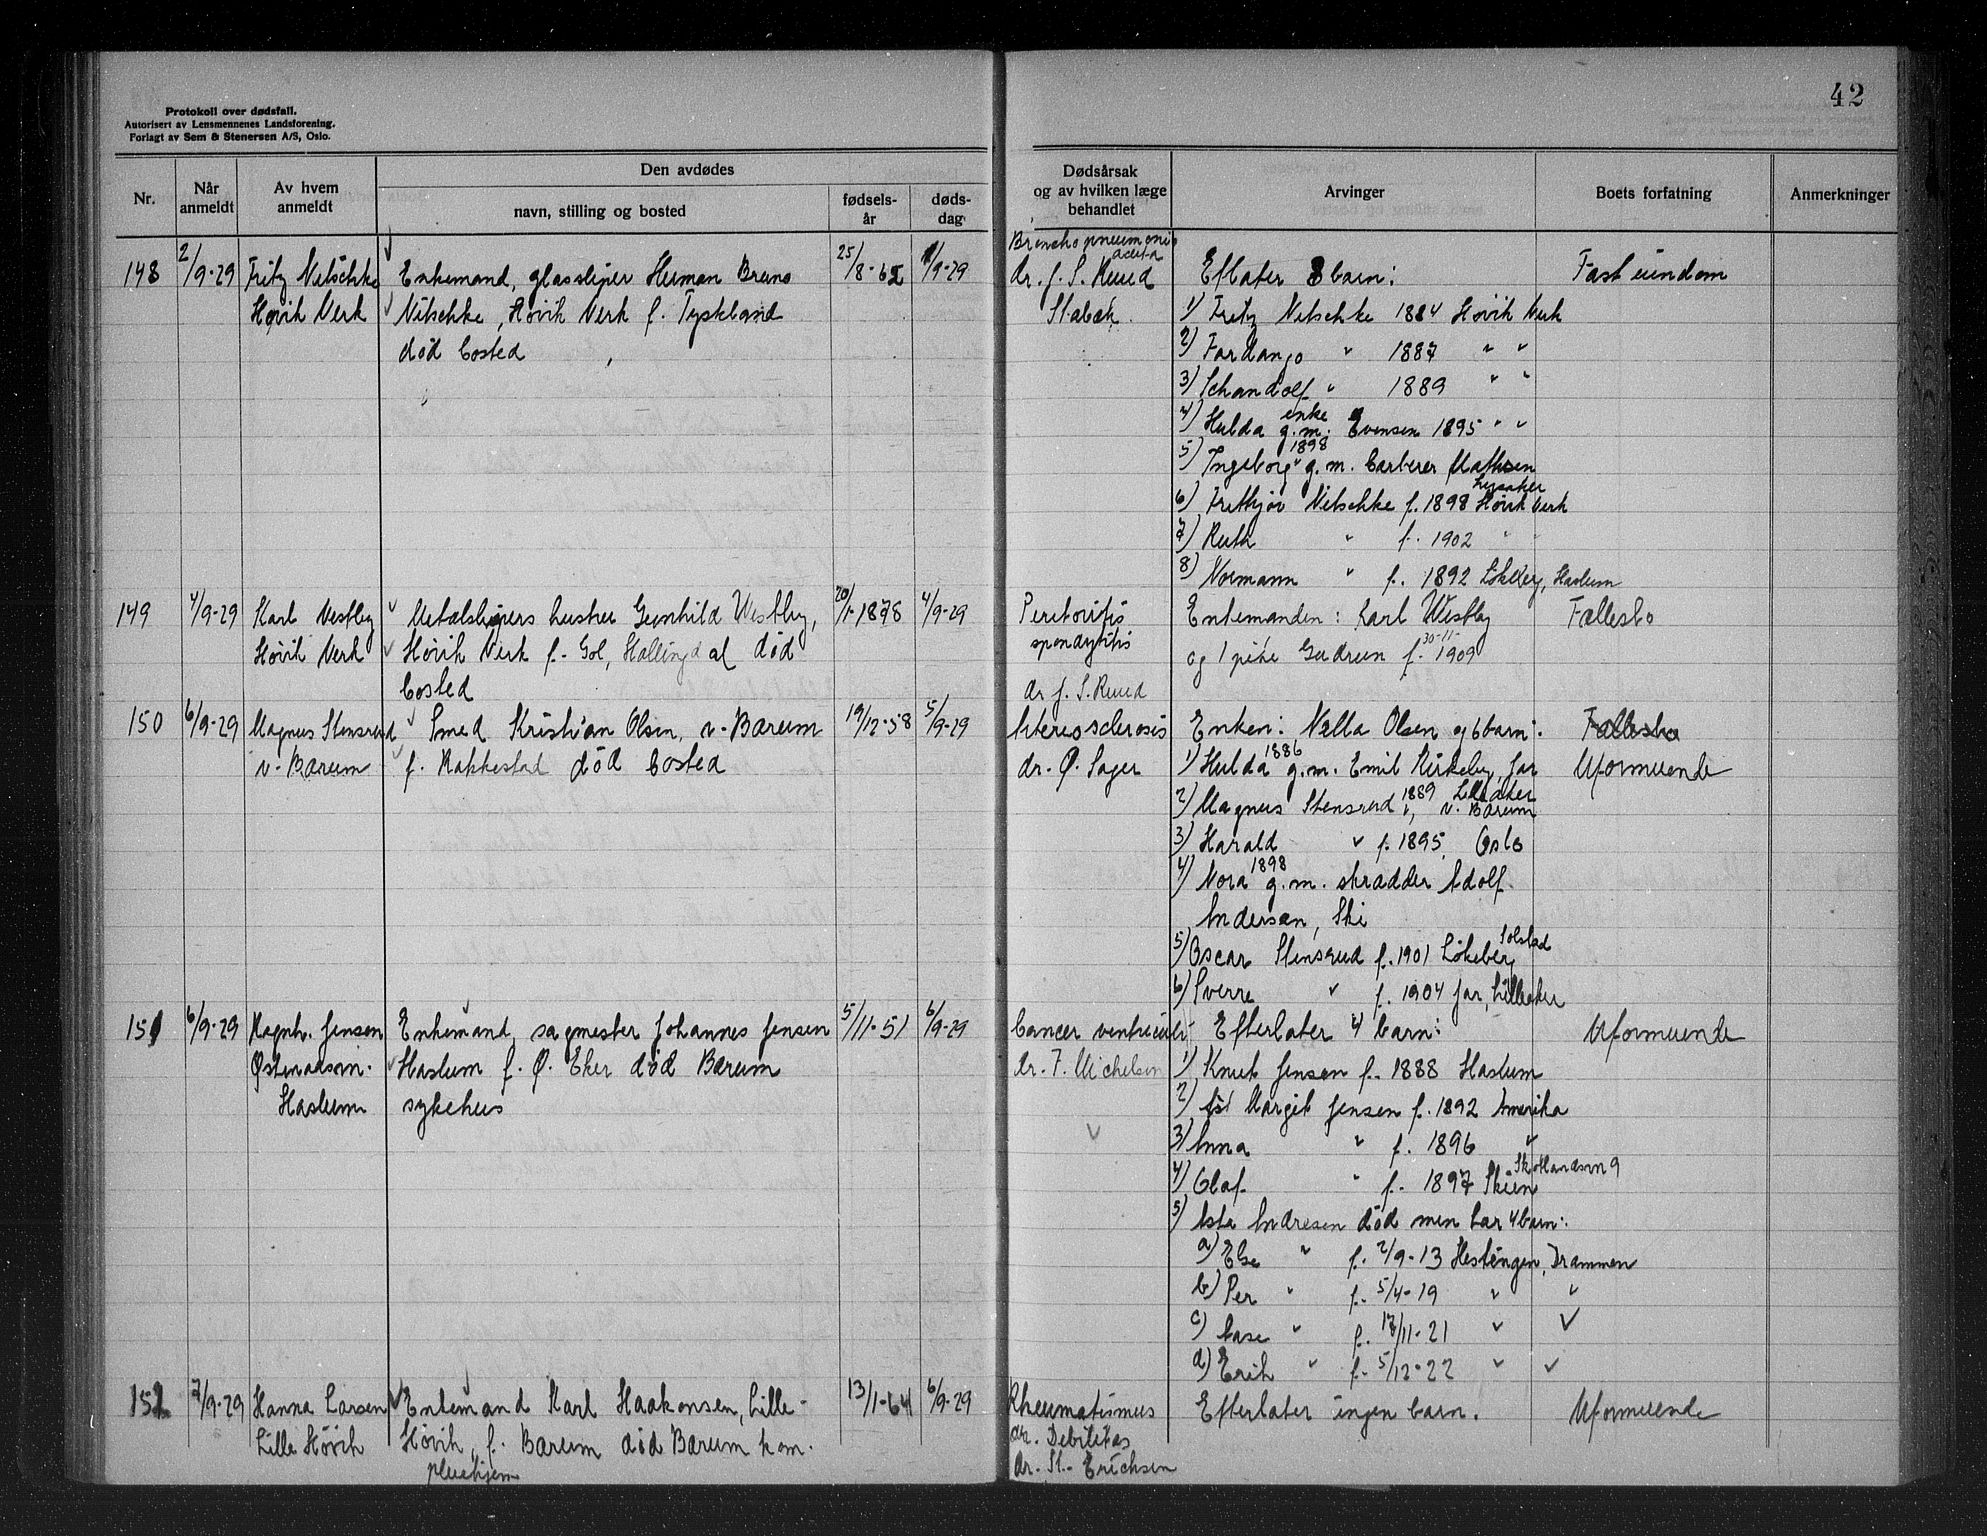 42
Protokoll over dødsfall.
Autorisert av Lensmennenes Landsforening.
Forlagt av Sem & Stenersen A/S, Oslo.
Nr.
Når anmeldt
Av hvem anmeldt
Den avdødes
navn, stilling og bosted
fødsels-år
døds-dag
Dødsårsak og av hvilken læge behandlet
Arvinger
Boets forfatning
Anmerkninger
148 2/9-29 Fritz Nitschke Enkemand, glassliper Herman Bruno 25/8-62 1/9-29
Høvik Verk Nitschke, Høvik Verk f. Tyskland
død bosted
Bronchopneumoni
acuta
dr. J. S. Ruud Efterlater 8 barn: Fast eiendom
Stabæk 1) Fritz Nitschke 1884 Høvik Verk
2) Fardanjo " 1887 " "
3) Schandolf " 1889 " "
enke
4) Hulda g.m. Evensen 1895 " "
1898
5) Ingeborg g.m. barberer Mathsen
Lysaker
6) Fritkjov Nitschke f. 1898 Høvik Verk
7) Ruth " f. 1902 " "
8) Normann " f. 1892 Løkeberg, Haslum
149 4/9-29 Karl Vestby Metalslipers hustru Gunhild Westby, 20/1-1878 4/9-29
Høvik Verk Høvik Verk f. Gol, Hallingdal død
bosted
Peritonitis Enkemanden: Karl Westby Fællesbo
30-11-
og 1 pike Gudrun f. 1909
dr. J. S. Ruud
150 6/9-29 Magnus Stensrud Smed Kristian Olsen, v. Bærum 19/12-58 5/9-29
v. Bærum f. Rakkestad død bosted
Artereosclerosis Enken: Nella Olsen og 6 barn: Fællesbo
1886
dr. Ø. Sager 1) Hulda g.m. Emil Kirkeby, Jar Uformuende
1889 Lilleaker
2) Magnus Stensrud ", v. Bærum
3) Harald " f. 1895 Oslo
1898
4) Nora g.m. skrædder Adolf
Andersen, Ski
Solstad
5) Oscar Stensrud f. 1901 Løkeberg
6) Sverre " f. 1904 Jar, Lilleaker
151 6/9-29 Ragnh. Jensen Enkemand, sagmester Johannes Jensen 5/11-51 6/9-29
Haslum f. Ø. Eker død Bærum
Haslum sykehus
Cancer ventriculi Efterlater 4 barn: Uformuende
dr. F. Michelsen 1) Knut Jensen f. 1888 Haslum
2) Margit Jensen f. 1892 Amerika
3) Anna " f. 1896 "
4) Olaf " f. 1897 Skien
5) Asta Andresen død men har 4 barn:
a) Else " f. 2/9-13 Hestengen, Drammen
b) Per " f. 5/4-19 " "
c) Aase " f. 17/11-21 "
d) Erik " f. 5/12-22 "
152 7/9-29 Hanna Larsen Enkemand Karl Haakonsen, Lille- 13/1-64 6/9-29
Lille Høvik Høvik, f. Bærum død Bærum kom.
pleiehjem
Rheumatismus Efterlater ingen barn. Uformuende
dr. Debilitas
dr. St. Erichsen